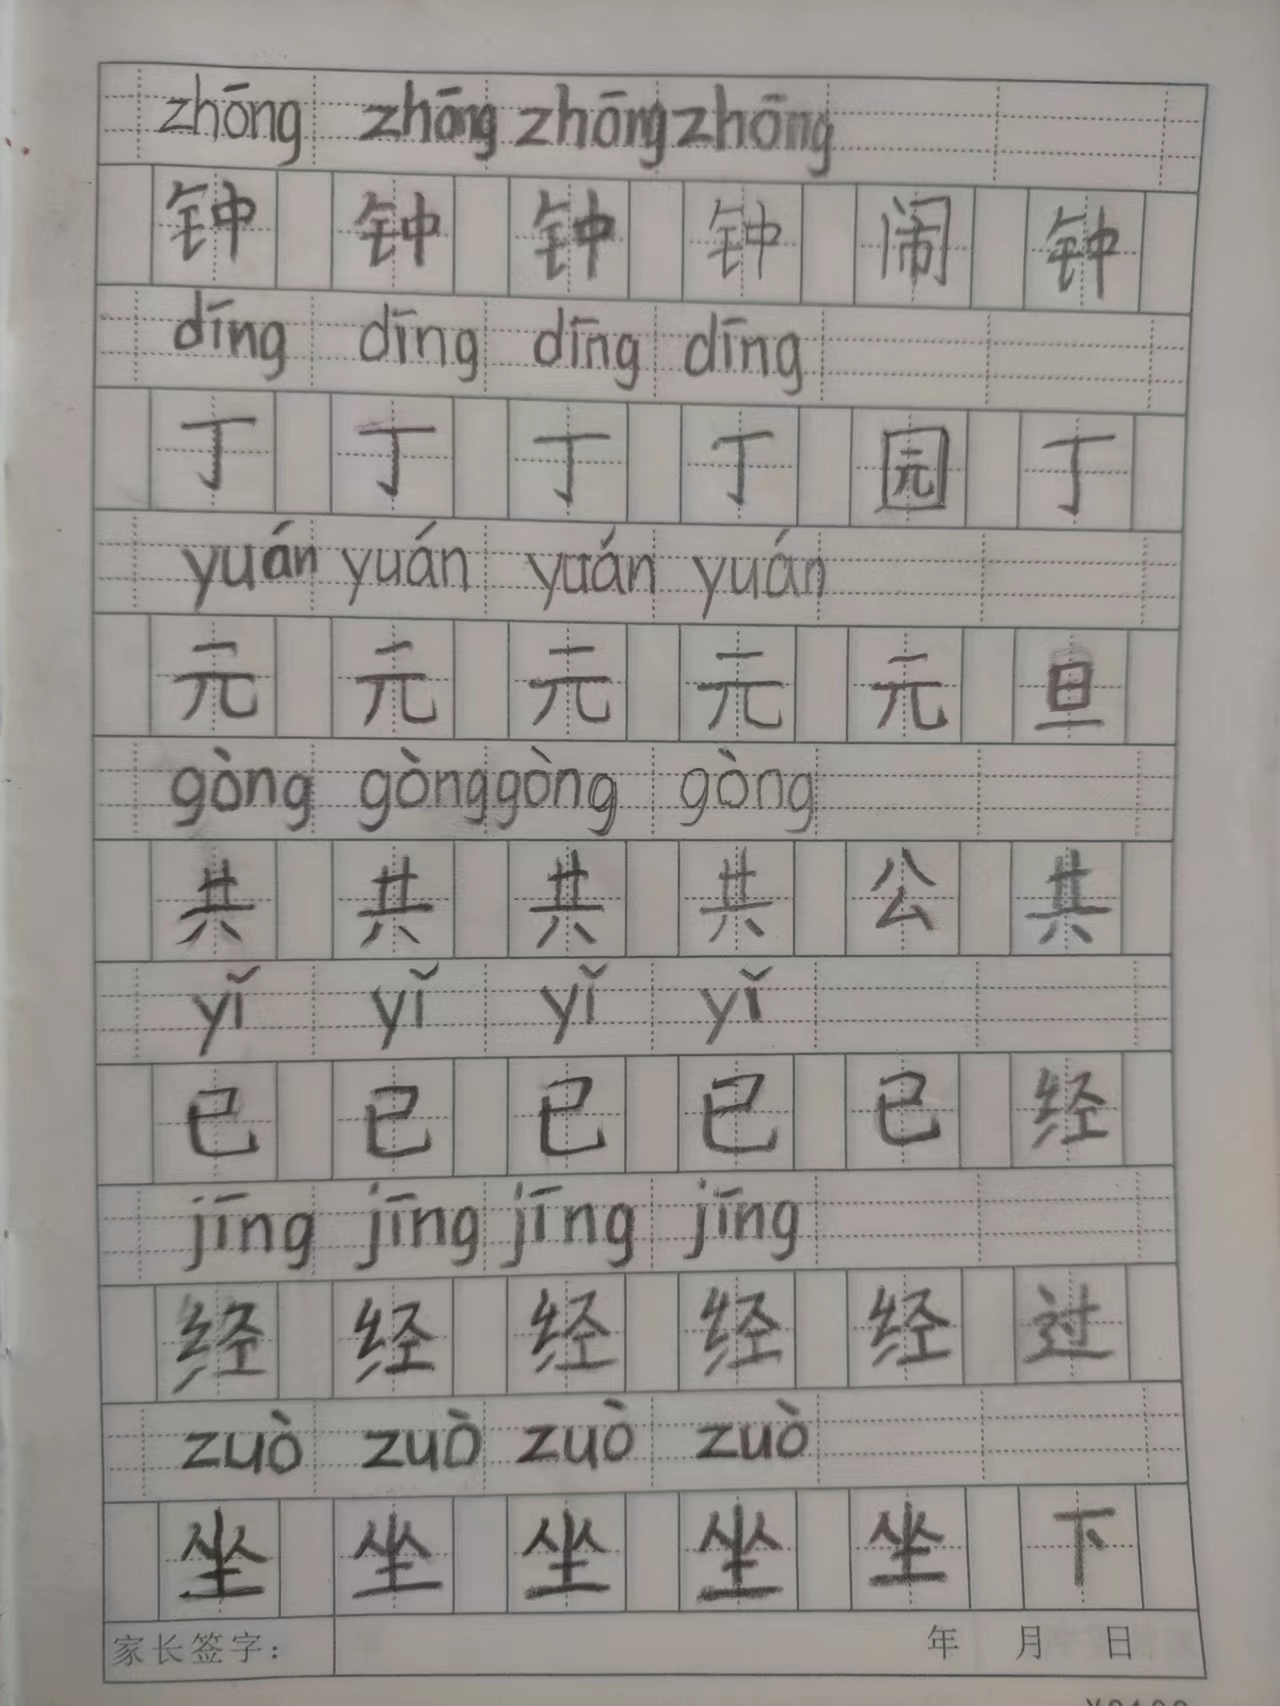 zhōng zhōng zhōng zhōng
钟 钟 钟 钟 闹 钟
dīng dīng dīng dīng
丁 丁 丁 丁 园 丁
yuán yuán yuán yuán
元 元 元 元 元 旦
gòng gòng gòng gòng
共 共 共 共 公 共
yǐ yǐ yǐ yǐ
已 已 已 已 已 经
jīng jīng jīng jīng
经 经 经 经 经 过
zuò zuò zuò zuò
坐 坐 坐 坐 坐 下
家长签字： 年 月 日